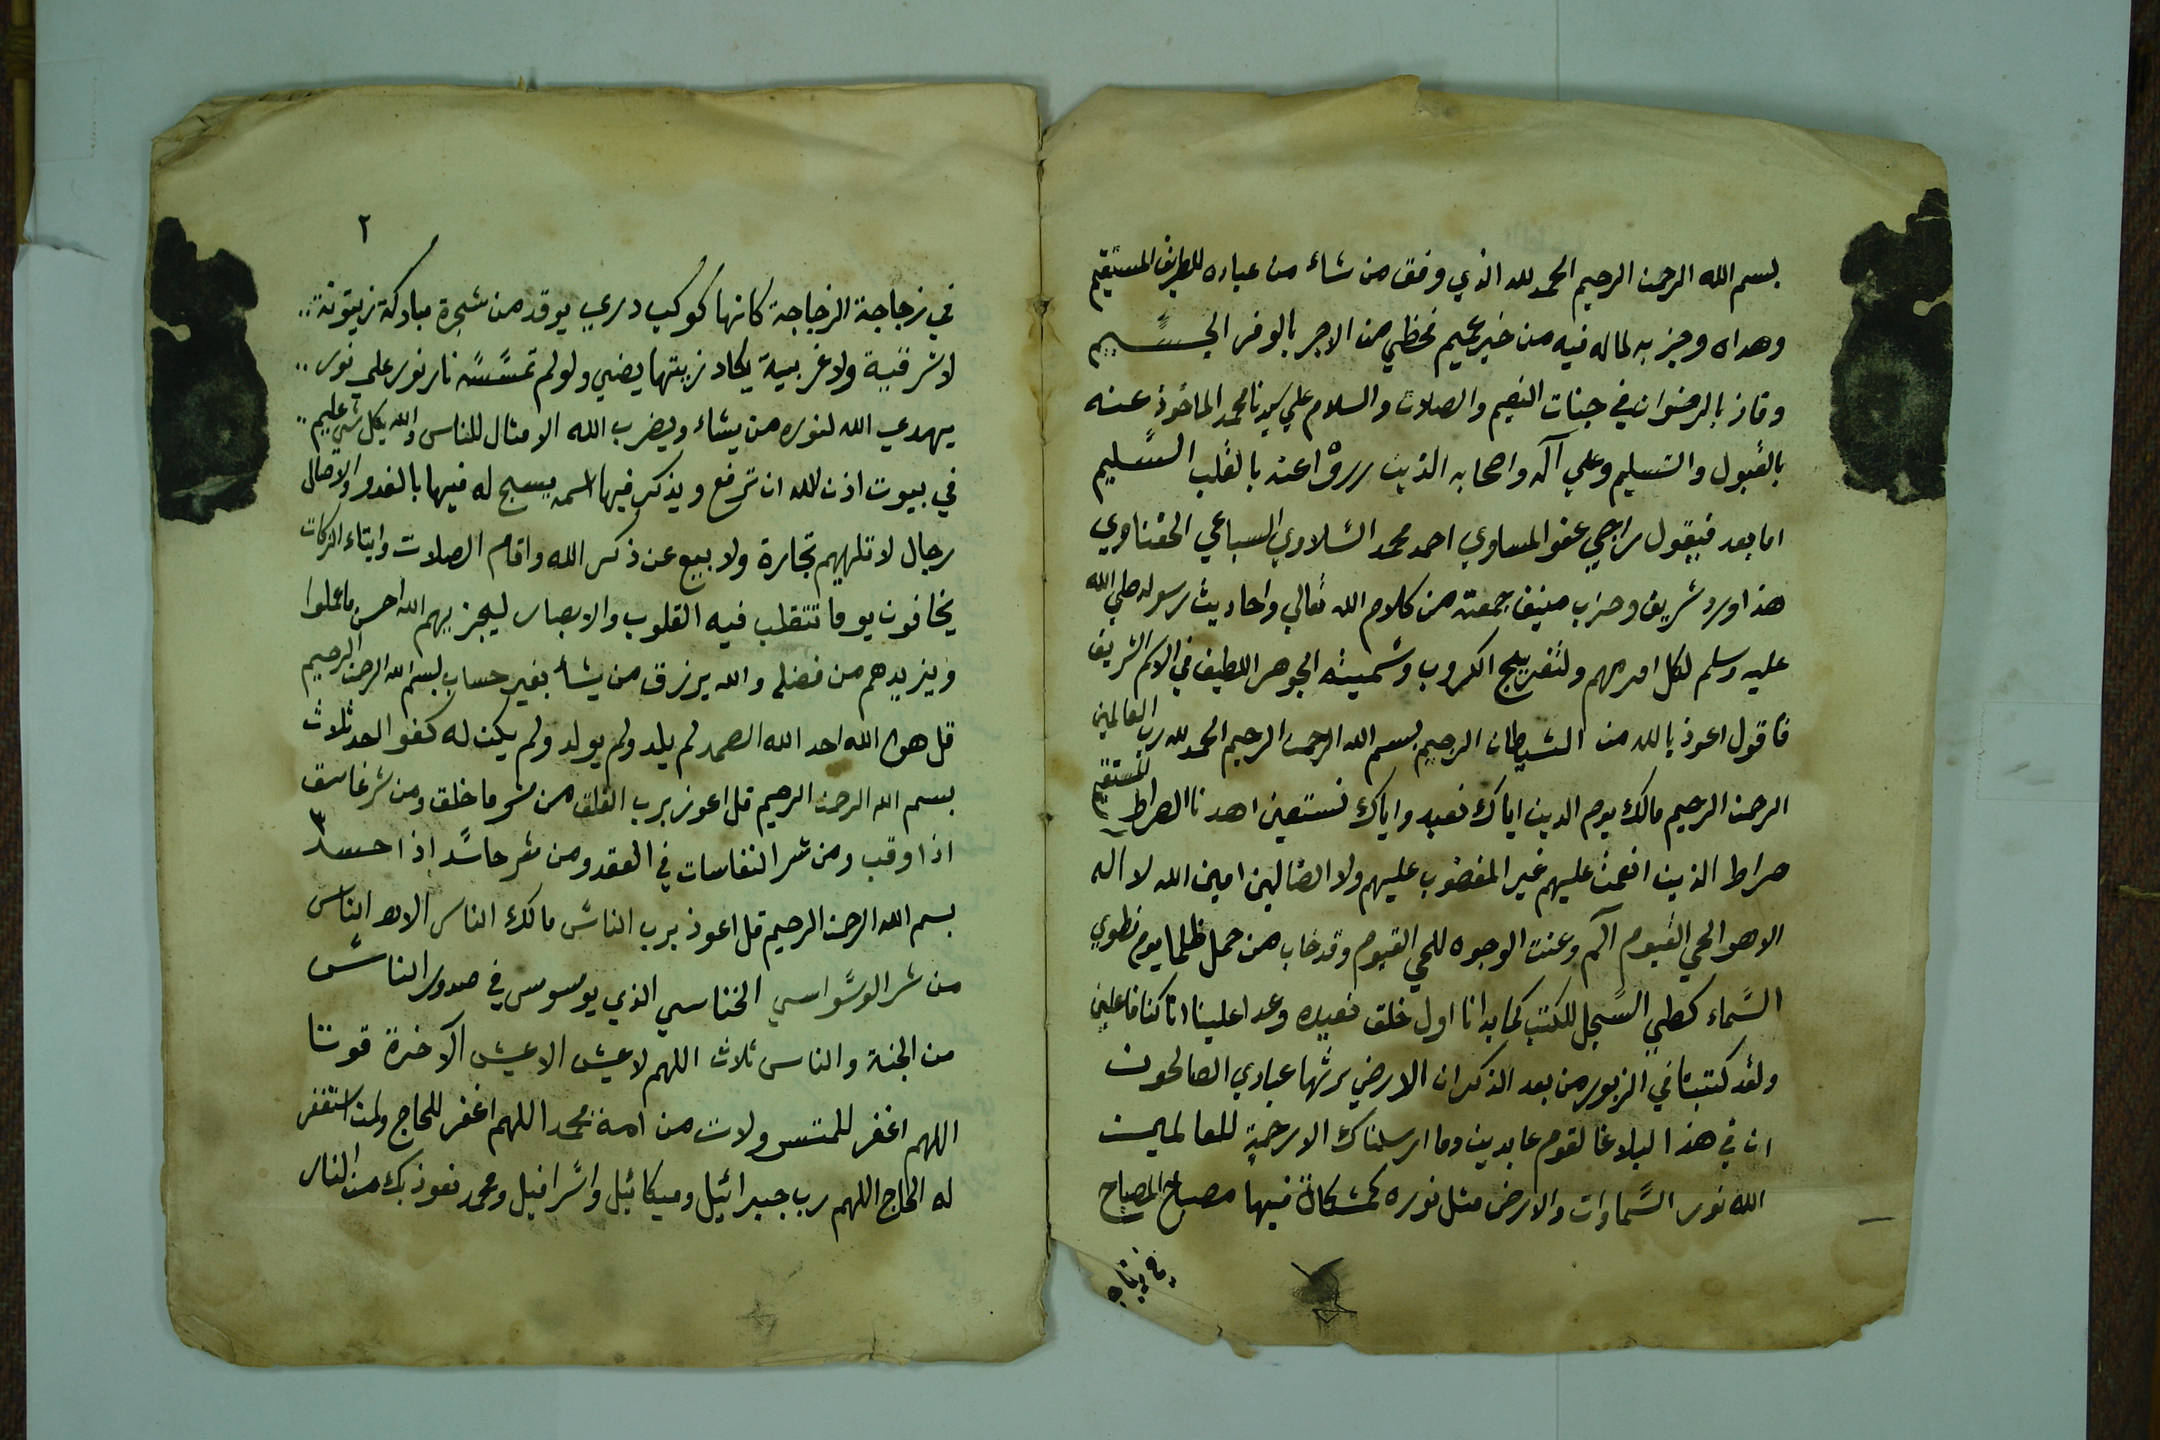 بسم الله الرحمن الرحيم الحمد لله الذي وفق من شاء من عباده للطريق المستقيم
وهداه وجزبه لماله فيه من خير عميم فحظي من الاجر بالوفر الجسيم
وفاز بالرضوان في جنات النعيم والصلات والسلام علي سيدنا محمد الماخوذ عنه
بالقبول والتسليم وعلي آله واصحابه الذين رروا عنه بالقلب السليم
اما بعد فيقول راجي عفو المساوي احمد محمد الشلاوي السباعي الحفناوي
هذا ورد شريف وحزب منيف جمعته من كلام الله تعالي واحاديث رسوله صلي الله
عليه وسلم لكل امر مهم ولتفريج الكروب وسميته الجوهر اللطيف في الاسم الشريف
فاقول اعوذ بالله من الشيطان الرجيم بسم الله الرحمن الرحيم الحمد لله رب العالمين
الرحمن الرحيم مالك يوم الدين اياك نعبد واياك نستعين اهدنا الصراط المستقيم
صراط الذين انعمت عليهم غير المغضوب عليهم ولا الضالين امين الله لا اله
الا هو الحي القيوم الم وعنت الوجوه للحي القيوم وقد خاب من حمل ظلما يوم نطوي
السماء كطي السجل للكتب كما بدانا اول خلق نعيده وعدا علينا انا كنا فاعلين
ولقد كتبنا في الزبور من بعد الذكر ان الارض يرثها عبادي الصالحون
ان في هذا لبلاغا لقوم عابدين وما ارسلناك الا رحمة للعالمين
الله نور السماوات والارض مثل نوره كمشكاة فيها مصباح المصباح
في زجاجة
٢
في زجاجة الزجاجة كانها كوكب دري يوقد من شجرة مباركة زيتونة
لا شرقية ولا غربية يكاد زيتها يضي ولو لم تمسسه نار نور علي نور
يهدي الله لنوره من يشاء ويضرب الله الامثال للناس والله بكل شي عليم
في بيوت اذن الله ان ترفع ويذكر فيها اسمه يسبح له فيها بالغدو والآصال
رجال لا تلهيهم تجارة ولا بيع عن ذكر الله واقام الصلات وايتاء الزكات
يخافون يوما تتقلب فيه القلوب والابصار ليجزيهم الله احسن ما عملوا
ويزيدهم من فضله والله يرزق من يشاء بغير حساب بسم الله الرحمن الرحيم
قل هو الله احد الله الصمد لم يلد ولم يولد ولم يكن له كفوا احد ثلاث
بسم الله الرحمن الرحيم قل اعوذ برب الفلق من شر ما خلق ومن شر غاسق
اذا وقب ومن شر النفاسات في العقد ومن شر حاسد اذا حسد ٣
بسم الله الرحمن الرحيم قل اعوذ برب الناس مالك الناس الاه الناس
من شر الوسواسي الخناسي الذي يوسوس في صدور الناس
من الجنة والناس ثلاث اللهم لا عيش الا عيش الآخرة قوتنا
اللهم اغفر للمتسرولات من امة محمد اللهم اغفر للحاج ولمن استغفر
له الحاج اللهم رب جبرائيل وميكائيل واسرافيل ومحمد نعوذ بك من النار